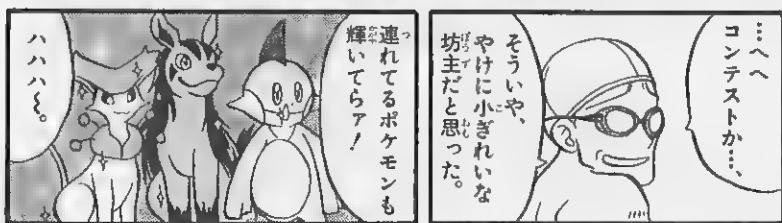 …へへ
コンテストか…、
そういや、
やけに小ぎれいな
坊主だと思った。
連れてるポケモンも
輝いてらァ!
ハハハ〜。